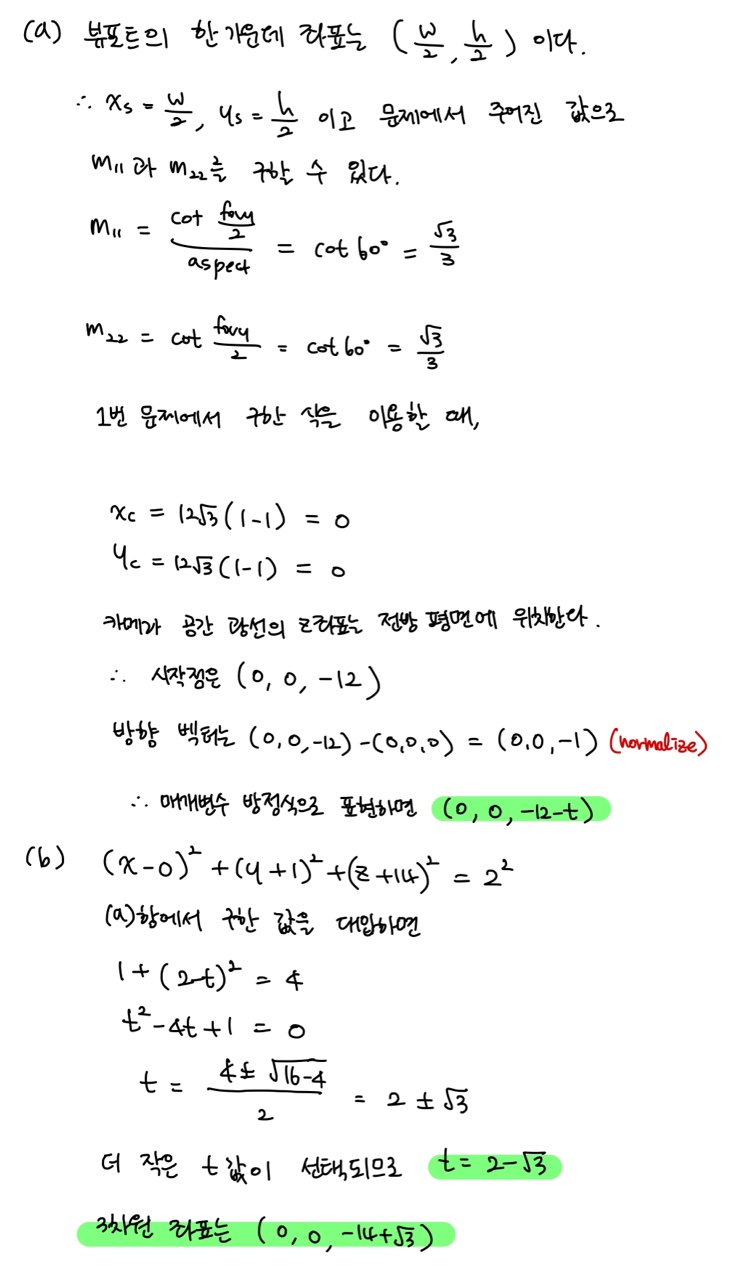 (a) 뷰포트의 한 가운데 좌표는 (w/2, h/2) 이다.
∴ xs = w/2, ys = h/2 이고 문제에서 주어진 값으로
m11과 m22를 구할 수 있다.
m11 = cot fovy/2 / aspect = cot 60° = √3/3
m22 = cot fovy/2 = cot 60° = √3/3
1번 문제에서 구한 식을 이용할 때,
xc = 12√3(1-1) = 0
yc = 12√3(1-1) = 0
카메라 공간 광선의 z좌표는 전방 평면에 위치한다.
∴ 시작점은 (0, 0, -12)
방향 벡터는 (0,0,-12)-(0,0,0) = (0,0,-1) (normalize)
∴ 매개변수 방정식으로 표현하면 (0, 0, -12-t)
(b) (x-0)² + (y+1)² + (z+14)² = 2²
(a)항에서 구한 값을 대입하면
1+(2-t)² = 4
t²-4t+1 = 0
t = 4±√16-4 / 2 = 2±√3
더 작은 t값이 선택되므로 t = 2-√3
3차원 좌표는 (0, 0, -14+√3)